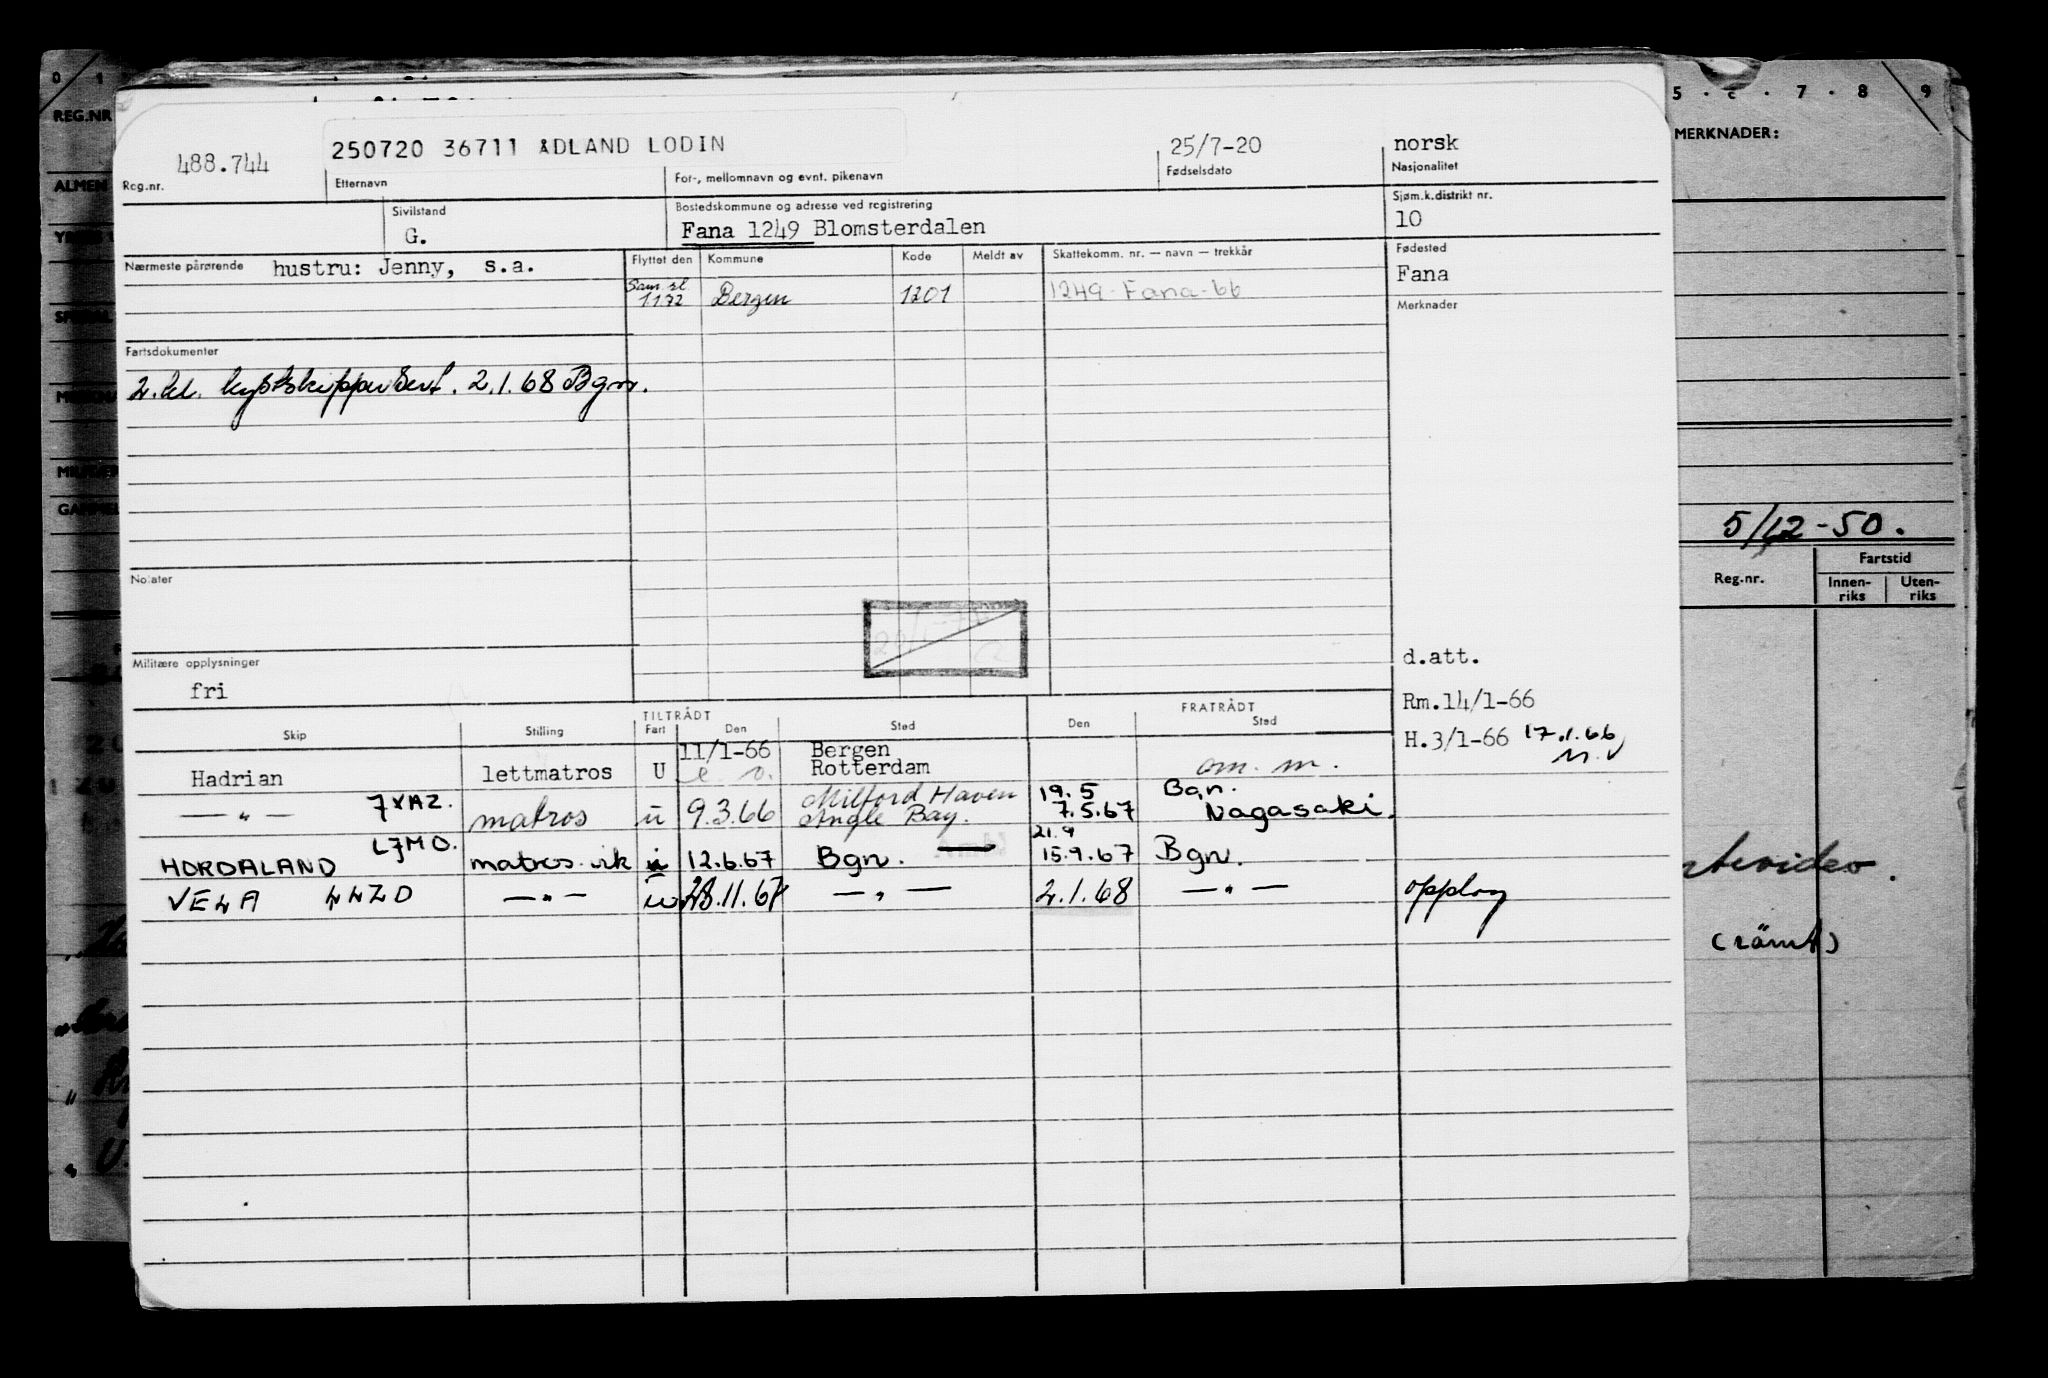 0 1
REG.NR
5 · 6 · 7 · 8 9
MERKNADER:
488.744
250720 36711 ÅDLAND LODIN
25/7-20
norsk
Reg.nr.
Etternavn
For-, mellomnavn og evnt. pikenavn
Fødselsdato
Nasjonalitet
Sivilstand
G.
Bostedskommune og adresse ved registrering
Fana 1249 Blomsterdalen
Sjøm.k.distrikt nr.
10
Nærmeste pårørende hustru: Jenny, s.a.
Flyttet den
Kommune
Kode
Meldt av
Skattekomm. nr. — navn — trekkår
Fødested
Fana
1172 Bergen 1201 1249-Fana-66
Merknader
Fartsdokumenter
2. kl. kystskippersert. 2.1.68 Bgn.
5/12-50.
Fartstid
Reg.nr.
Innen-riks
Uten-riks
Notater
Militære opplysninger
fri
d.att.
Rm.14/1-66
H.3/1-66 17.1.66
TILTRÅDT
FRATRÅDT
Skip
Stilling
Fart
Den
Sted
Den
Sted
11/1-66 Bergen
Hadrian lettmatros U Rotterdam
— " — 7XAZ. matros u 9.3.66 Milford Haven Angle Bay. 19.5 7.5.67 Bgn. Nagasaki.
HORDALAND LJMO. matros vik 12.6.67 Bgn. — 21.9 15.9.67 Bgn.
VELA LLZD — " — 28.11.67 — " — 2.1.68 — " —
(römt)